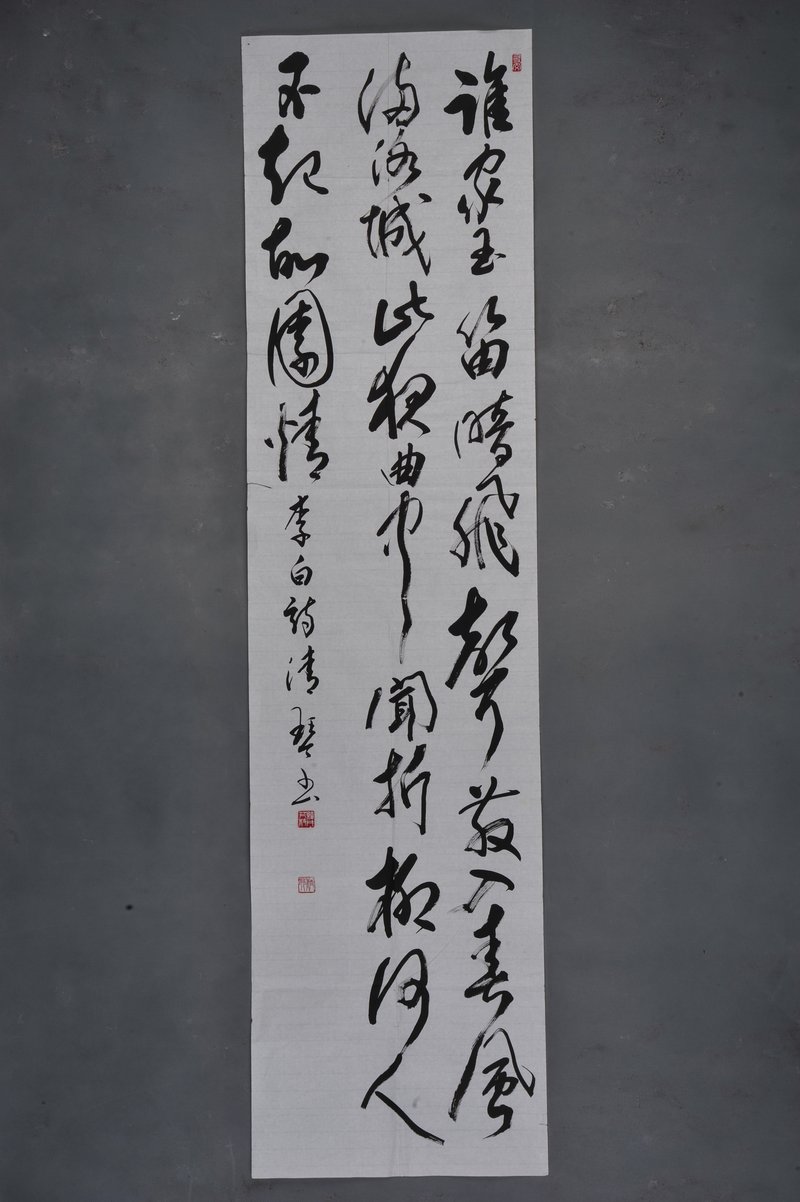 誰家玉笛暗飛聲散入春風
滿洛城此夜曲中聞折柳何人
不起故園情李白詩清琴书